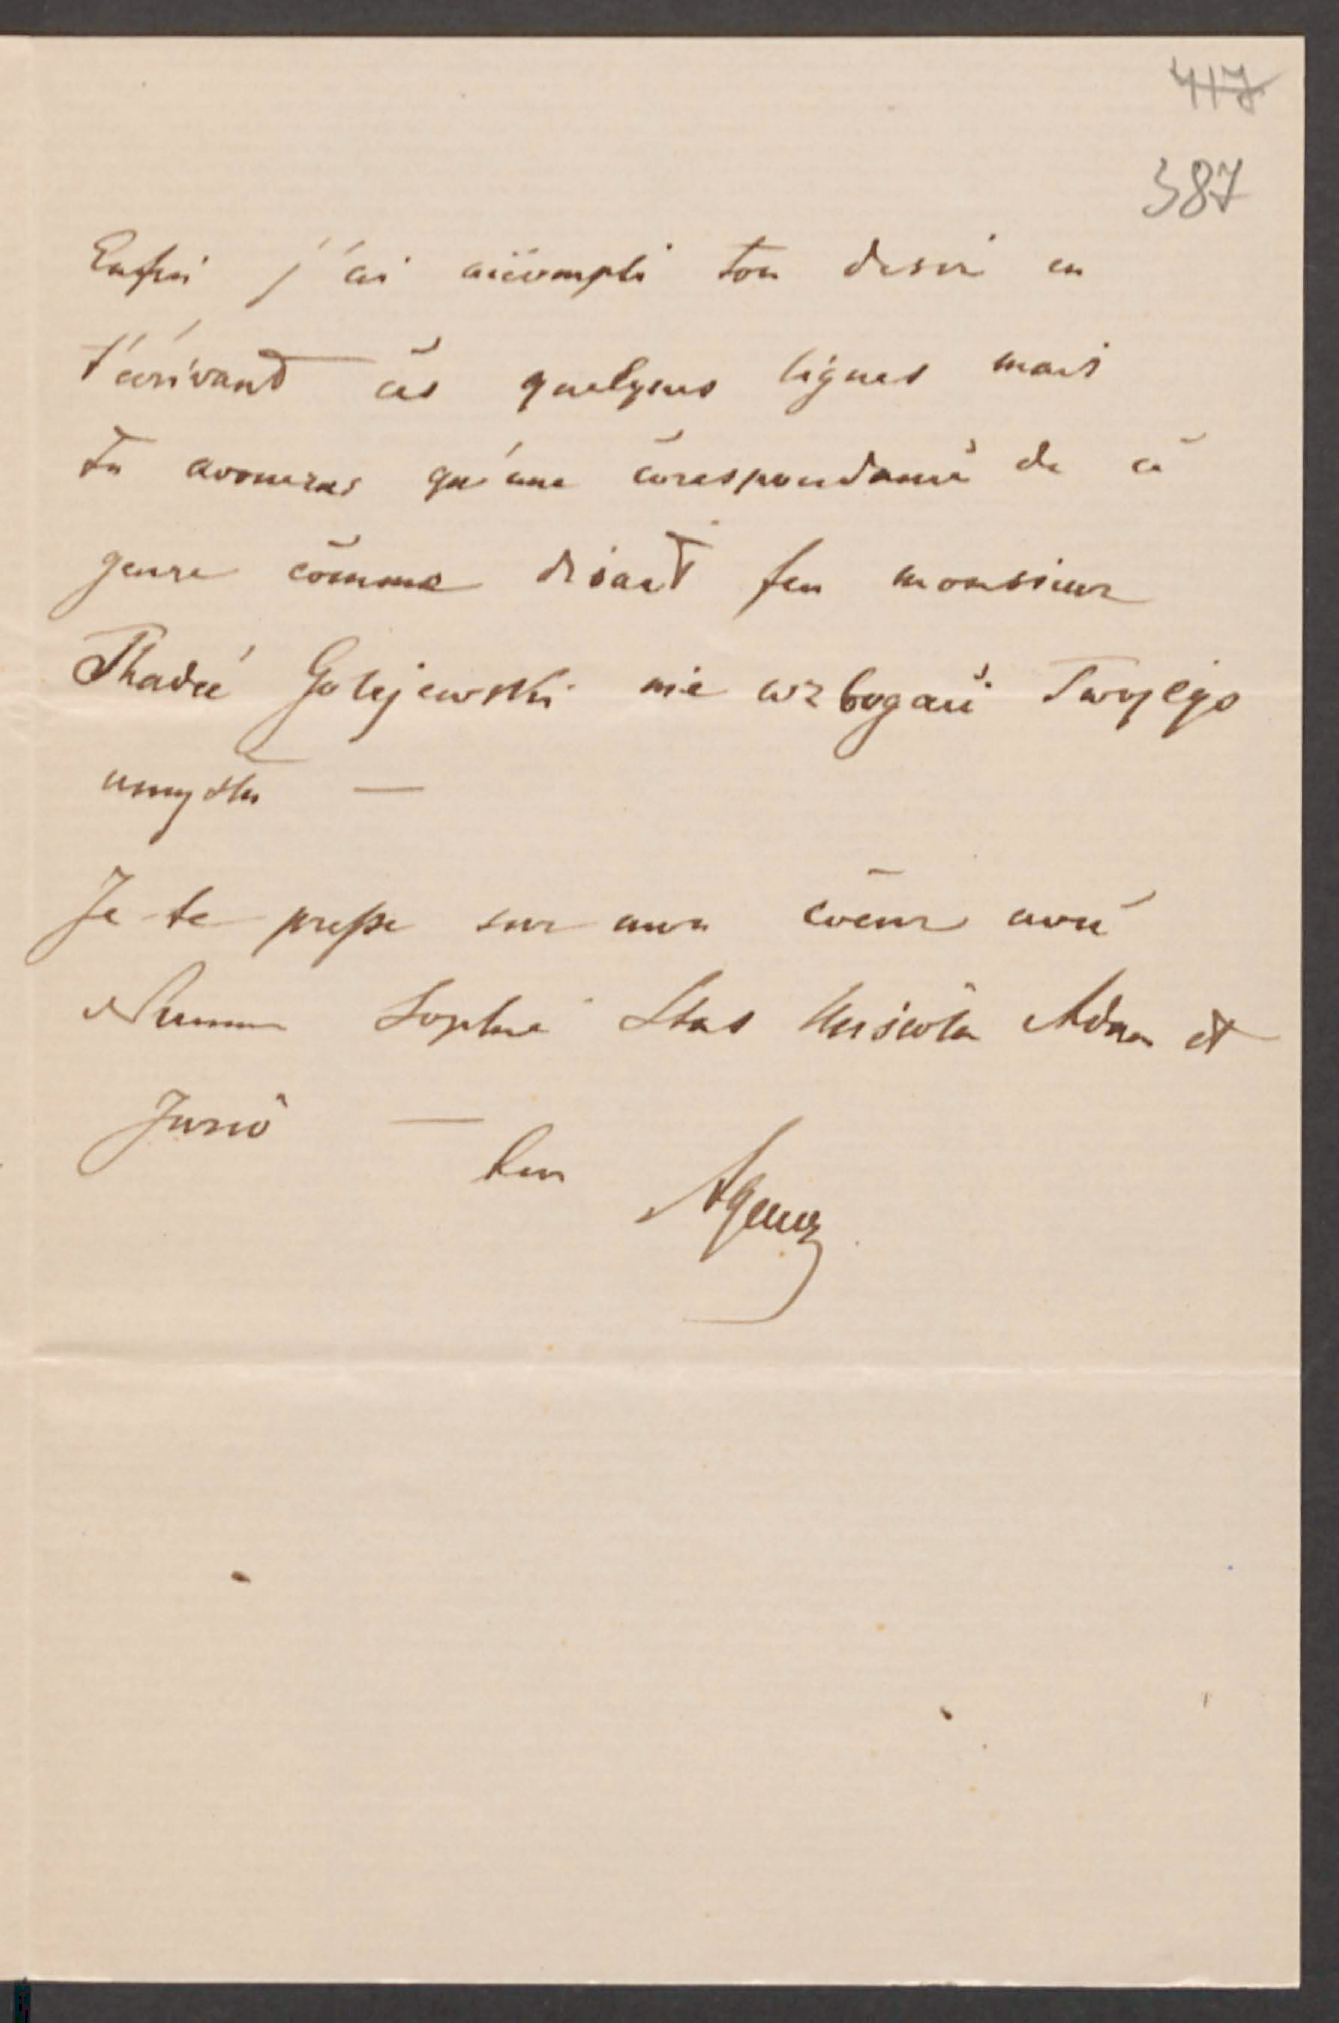 417
387
Enfin j'ai accompli ton desir en
t'écrivant ces quelques lignes mais
tu avoueras qu'une corespondance de ce
genre comme disait feu monsieur
Thadée Golejewski nie wzbogaci Twojego
umysłu —
Je te presse sur mon coeur avec
Sophie Stas Adam et
Juzio —